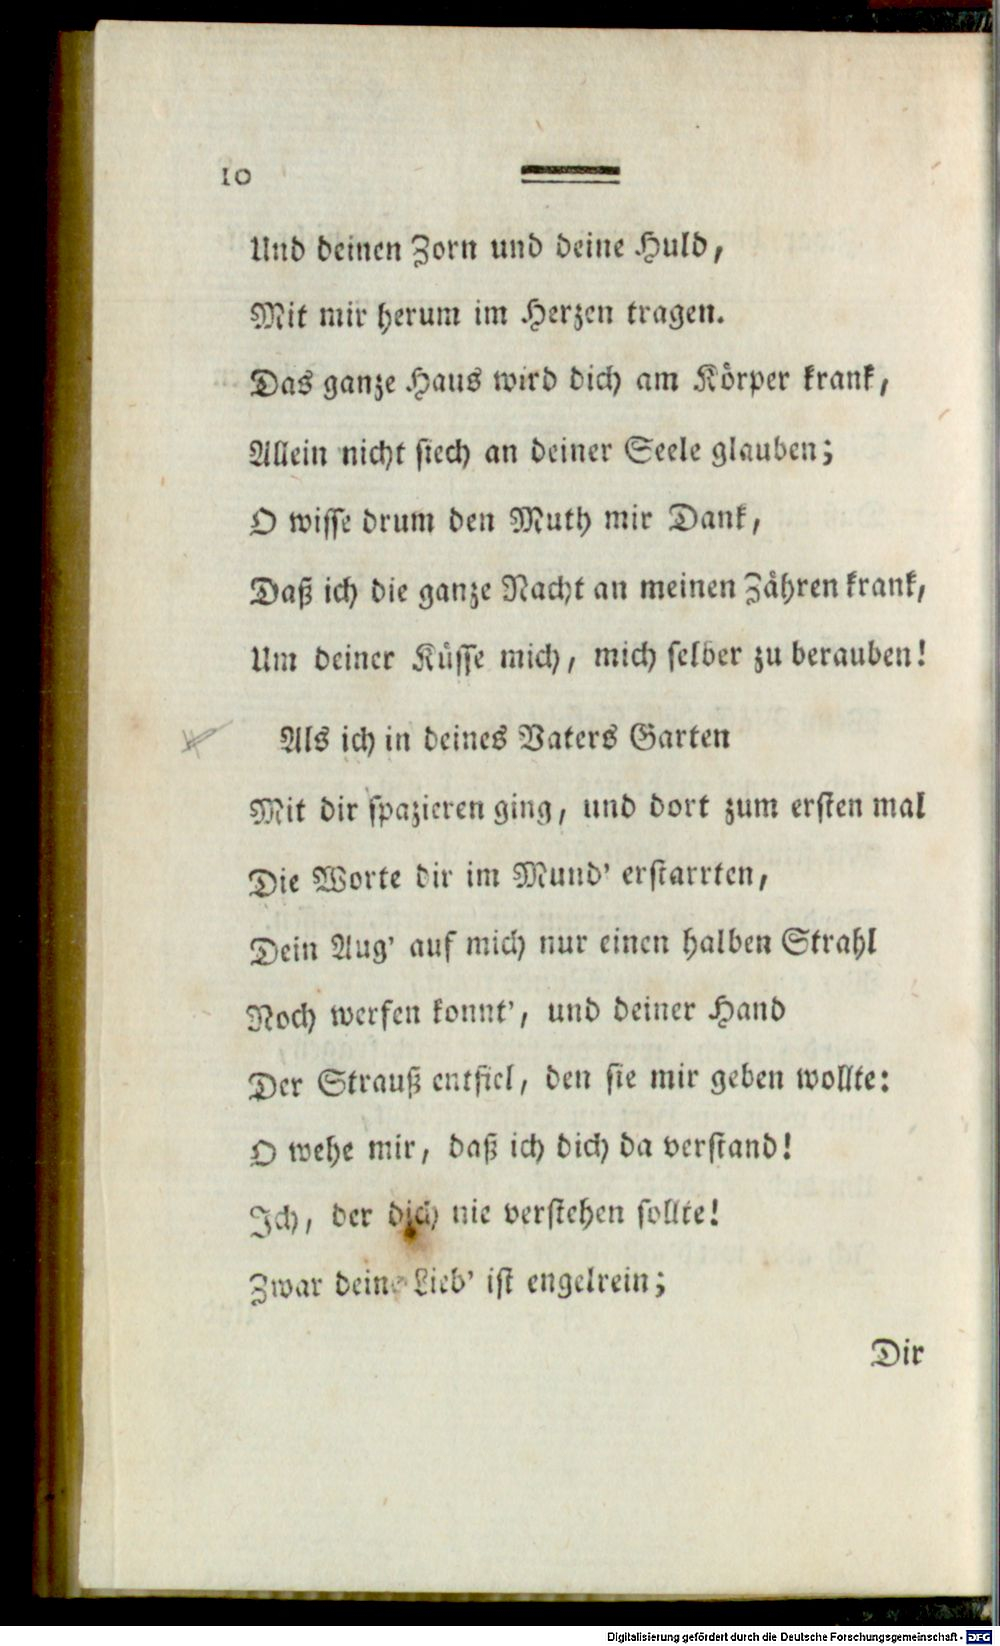 10
Und deinen Zorn und deine Huld,
Mit mir herum im Herzen tragen.
Das ganze Haus wird dich am Körper krank,
Allein nicht siech an deiner Seele glauben;
O wisse drum den Muth mir Dank,
Daß ich die ganze Nacht an meinen Zähren krank,
Um deiner Küsse mich, mich selber zu berauben!
Als ich in deines Vaters Garten
Mit dir spazieren ging, und dort zum ersten mal
Die Worte dir im Mund' erstarrten,
Dein Aug' auf mich nur einen halben Strahl
Noch werfen konnt', und deiner Hand
Der Strauß entfiel, den sie mir geben wollte:
O wehe mir, daß ich dich da verstand!
Ich, der dich nie verstehen sollte!
Zwar deine Lieb' ist engelrein;
Dir
Digitalisierung gefördert durch die Deutsche Forschungsgemeinschaft - DFG